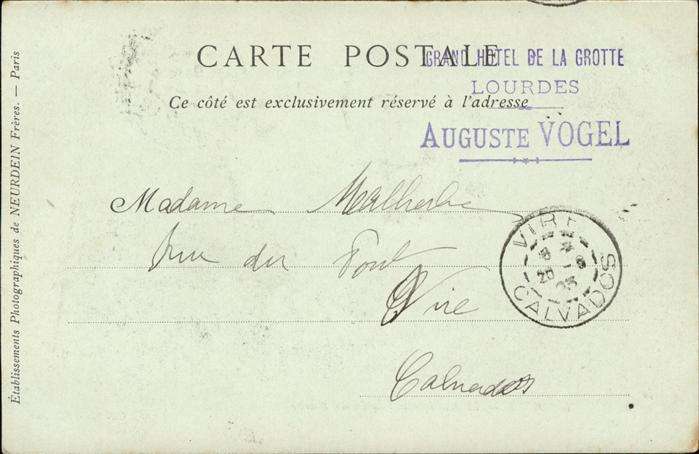 CARTE POSTALE
Ce côté est exclusivement réservé à l'adresse
GRAND HOTEL DE LA GROTTE
LOURDES
AUGUSTE VOGEL
Madame Malherbe
Rue du Pont
Vire
Calvados
VIRE
CALVADOS
Établissements Photographiques de NEURDEIN Frères. — Paris